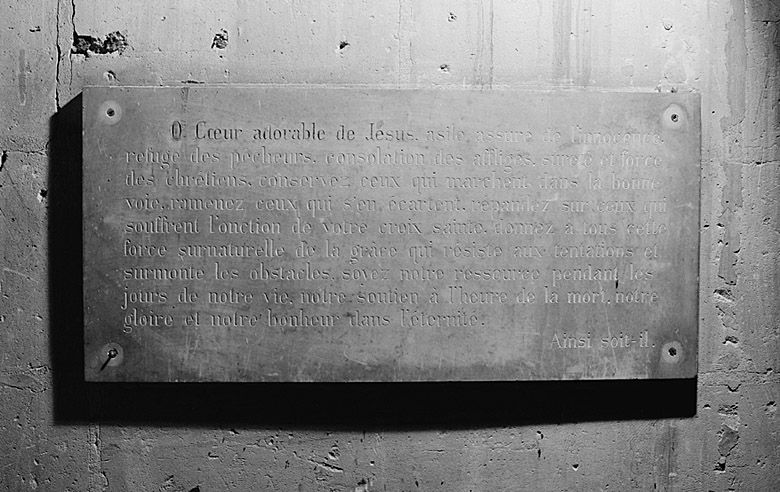 O Cœur adorable de Jésus, asile assuré de l'innocence,
refuge des pécheurs, consolation des affligés, sureté et force
des chrétiens, conservez ceux qui marchent dans la bonne
voie, ramenez ceux qui s'en écartent, répandez sur ceux qui
souffrent l'onction de votre croix sainte, donnez à tous cette
force surnaturelle de la grâce qui résiste aux tentations et
surmonte les obstacles, soyez notre ressource pendant les
jours de notre vie, notre soutien à l'heure de la mort, notre
gloire et notre bonheur dans l'éternité.
Ainsi soit-il.